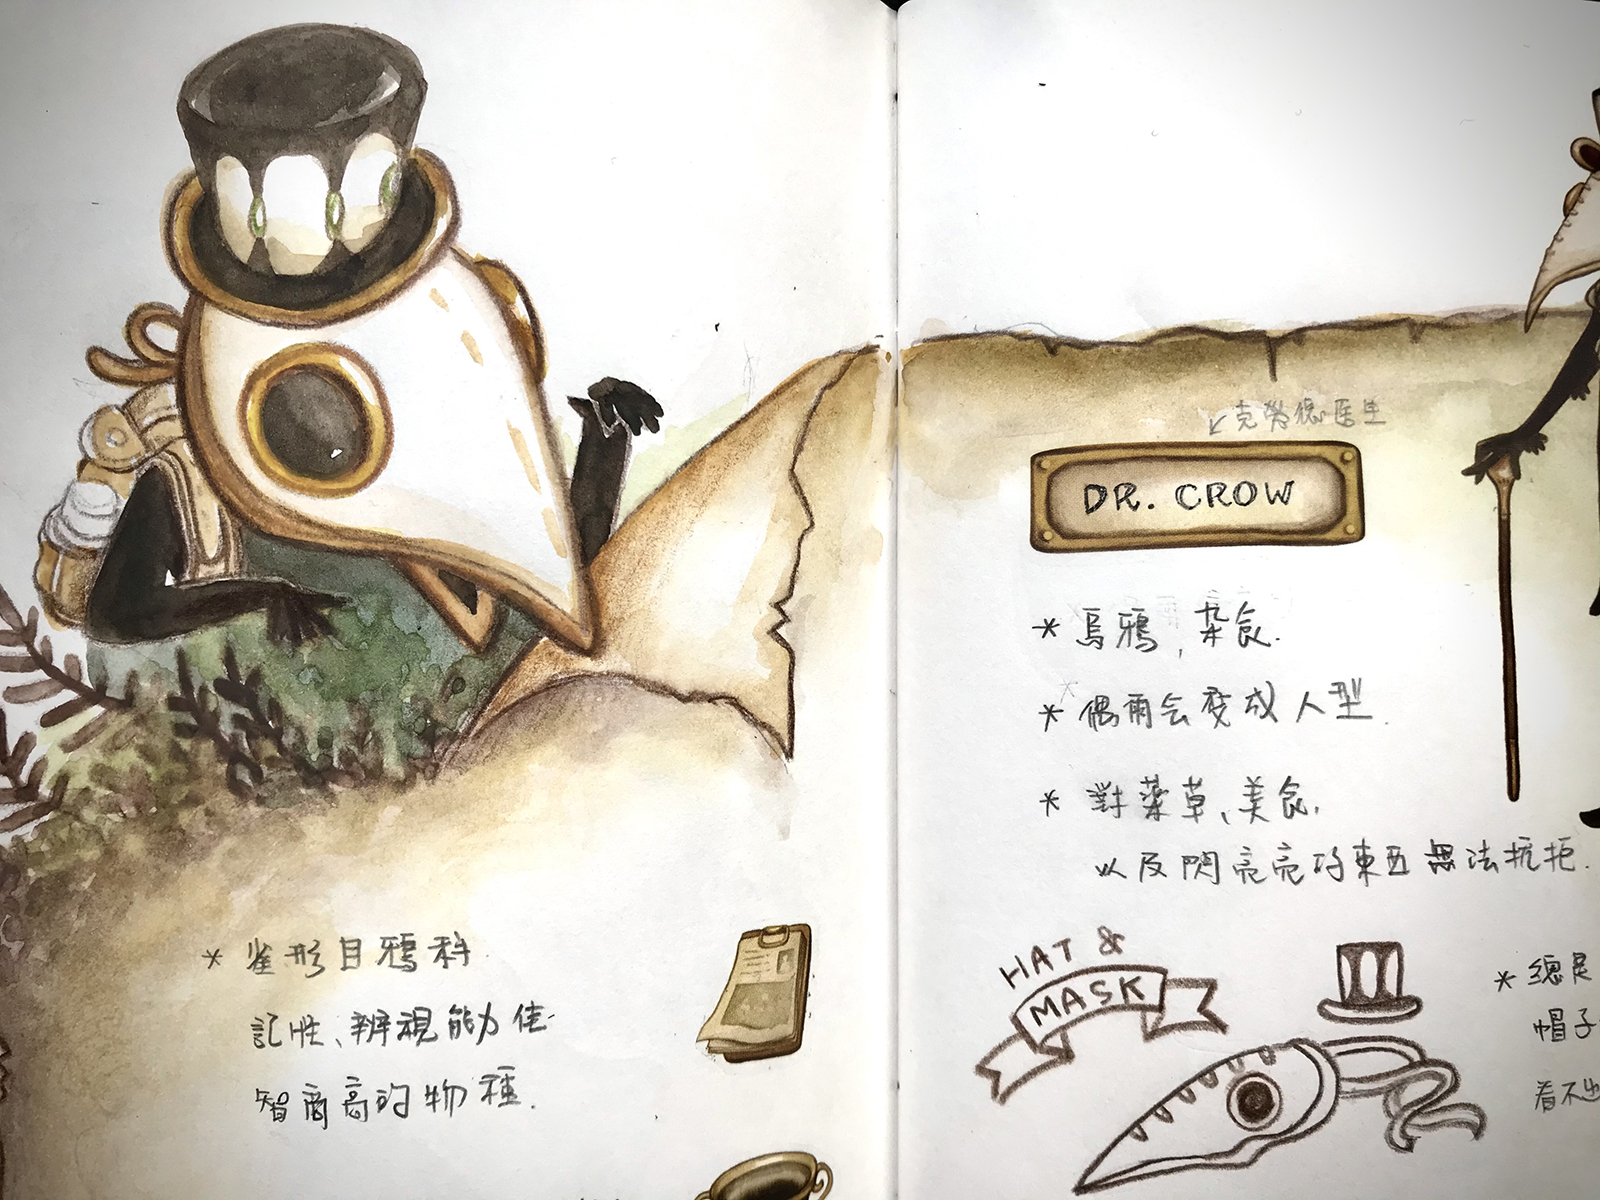 * 雀形目鴉科
記性、辨視能力佳.
智商高的物種.
克勞德医生
DR. CROW
* 烏鴉, 杂食.
* 偶爾会变成人型.
* 對藥草、美食,
以及閃亮亮的東西無法抗拒.
HAT &
MASK
* 總是
帽子
看不出